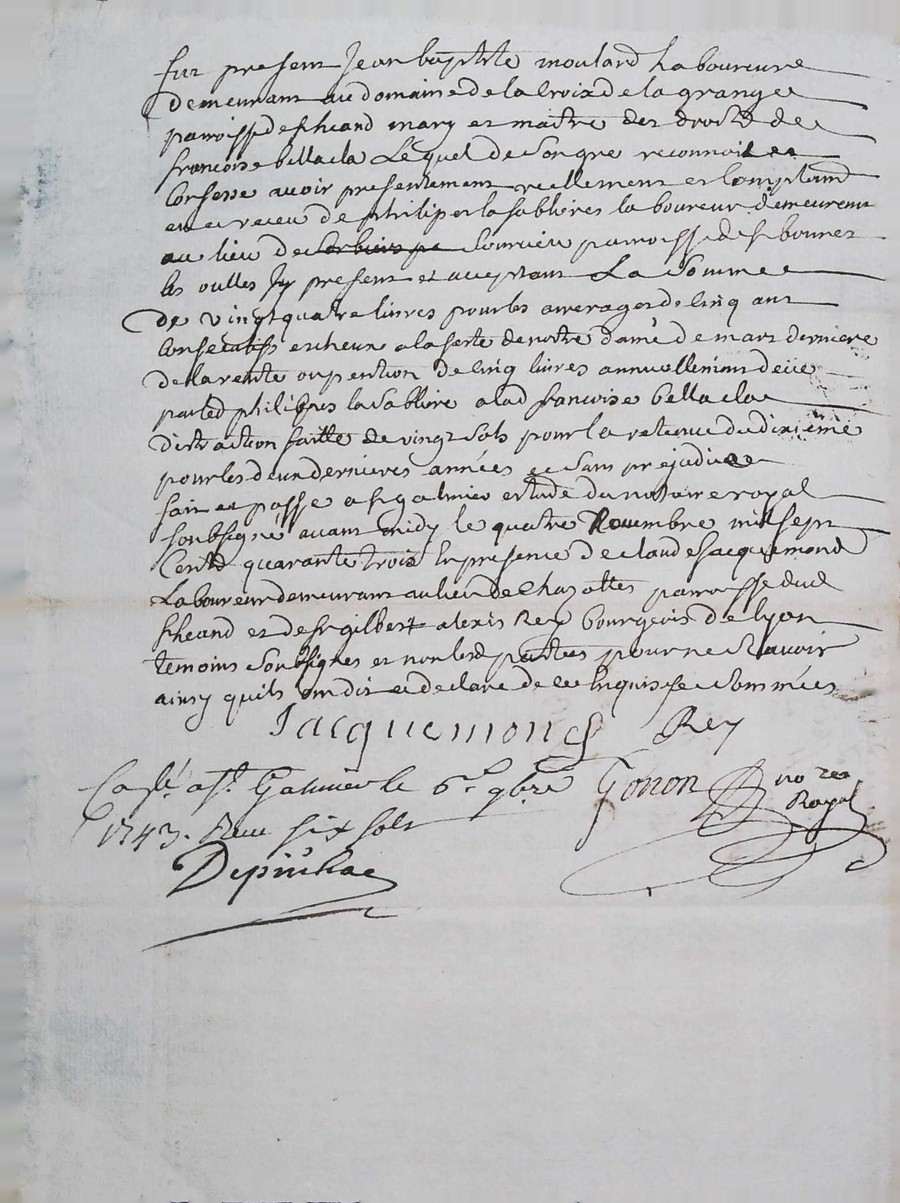 fut present Jean baptiste moulard Laboureure
demeurant au domaine de la Croix de la grangee
parroisse de st heand mary et maitre des droits de
francoise bellacla Lequel de Son gre reconnoit et
Confesse avoir presentement reellement et Comptand
eu et receu de philipes la Sablieres laboureur demeurent
au lieu de Sourcieu parroisse de st bonnet
les oulles Jy present et acceptant La Somme
de vingt quatre livres pour les arrerages de Cinq ans
Consecutifs echeux a la feste de notre dame de mars derniere
de la rente ou pention de Cinq livres annuellement deüe
par led philibes la Sabliere a lad francoise bellacla
distraction faitte de vingt Sols pour la retenue du dixiéme
pour les deux dernieres années et Sans prejudice
fait et passé a st galmier estude du notaire royal
soubsigné avant midy le quatre Novembre mil sept
Cents quarante trois En presence de claude Jacquemond
Laboureur demeurant au lieu de Chazottes parroisse dud
st heand et de sr gilbert alexis Rey bourgeois de lyon
temoins Soubsignes et non lesd parties pour ne Scavoir
ainsy quils ont dit et declare de ce Enquis et Sommées
Jacquemond Rey
Con.lé a st. Galmier le 6e 9bre Gonon no re
1743. Receu six sols Royal
Depiuhac